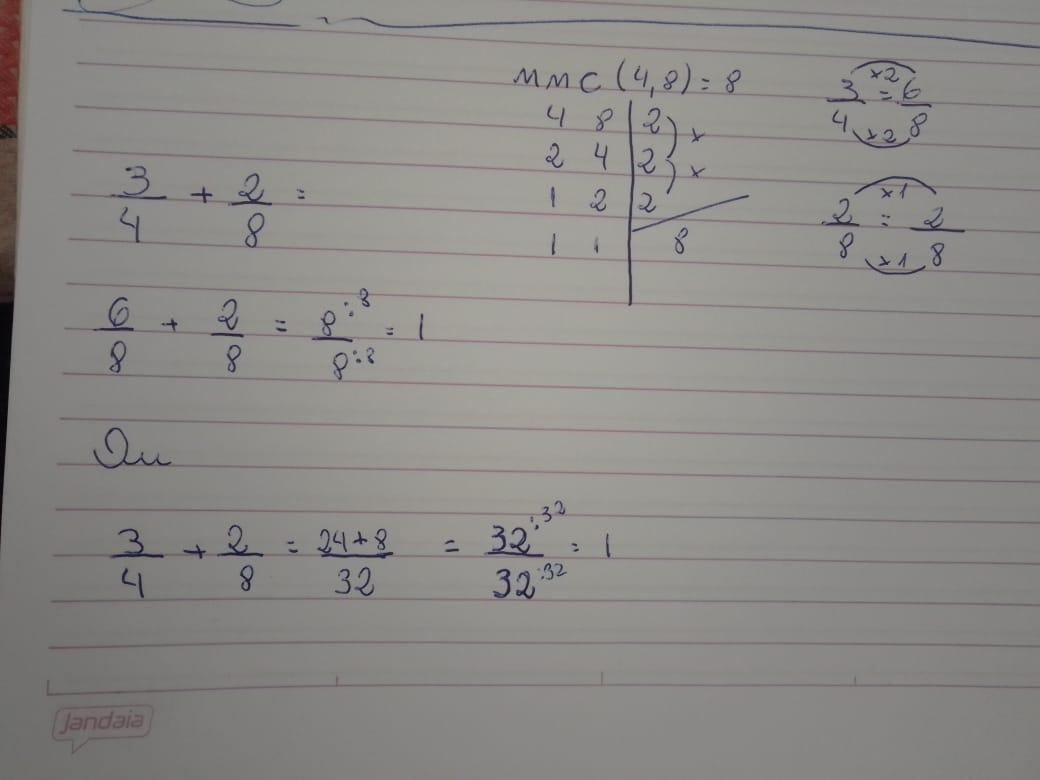 MMC (4,8) = 8
4 8 | 2
2 4 | 2
1 2 | 2
1 1 | 8
x
x
3/4 = 6/8
x2
x2
2/8 = 2/8
x1
x1
3/4 + 2/8 =
6/8 + 2/8 = 8:8/8:8 = 1
Ou
3/4 + 2/8 = 24+8/32 = 32:32/32:32 = 1
Jandaia